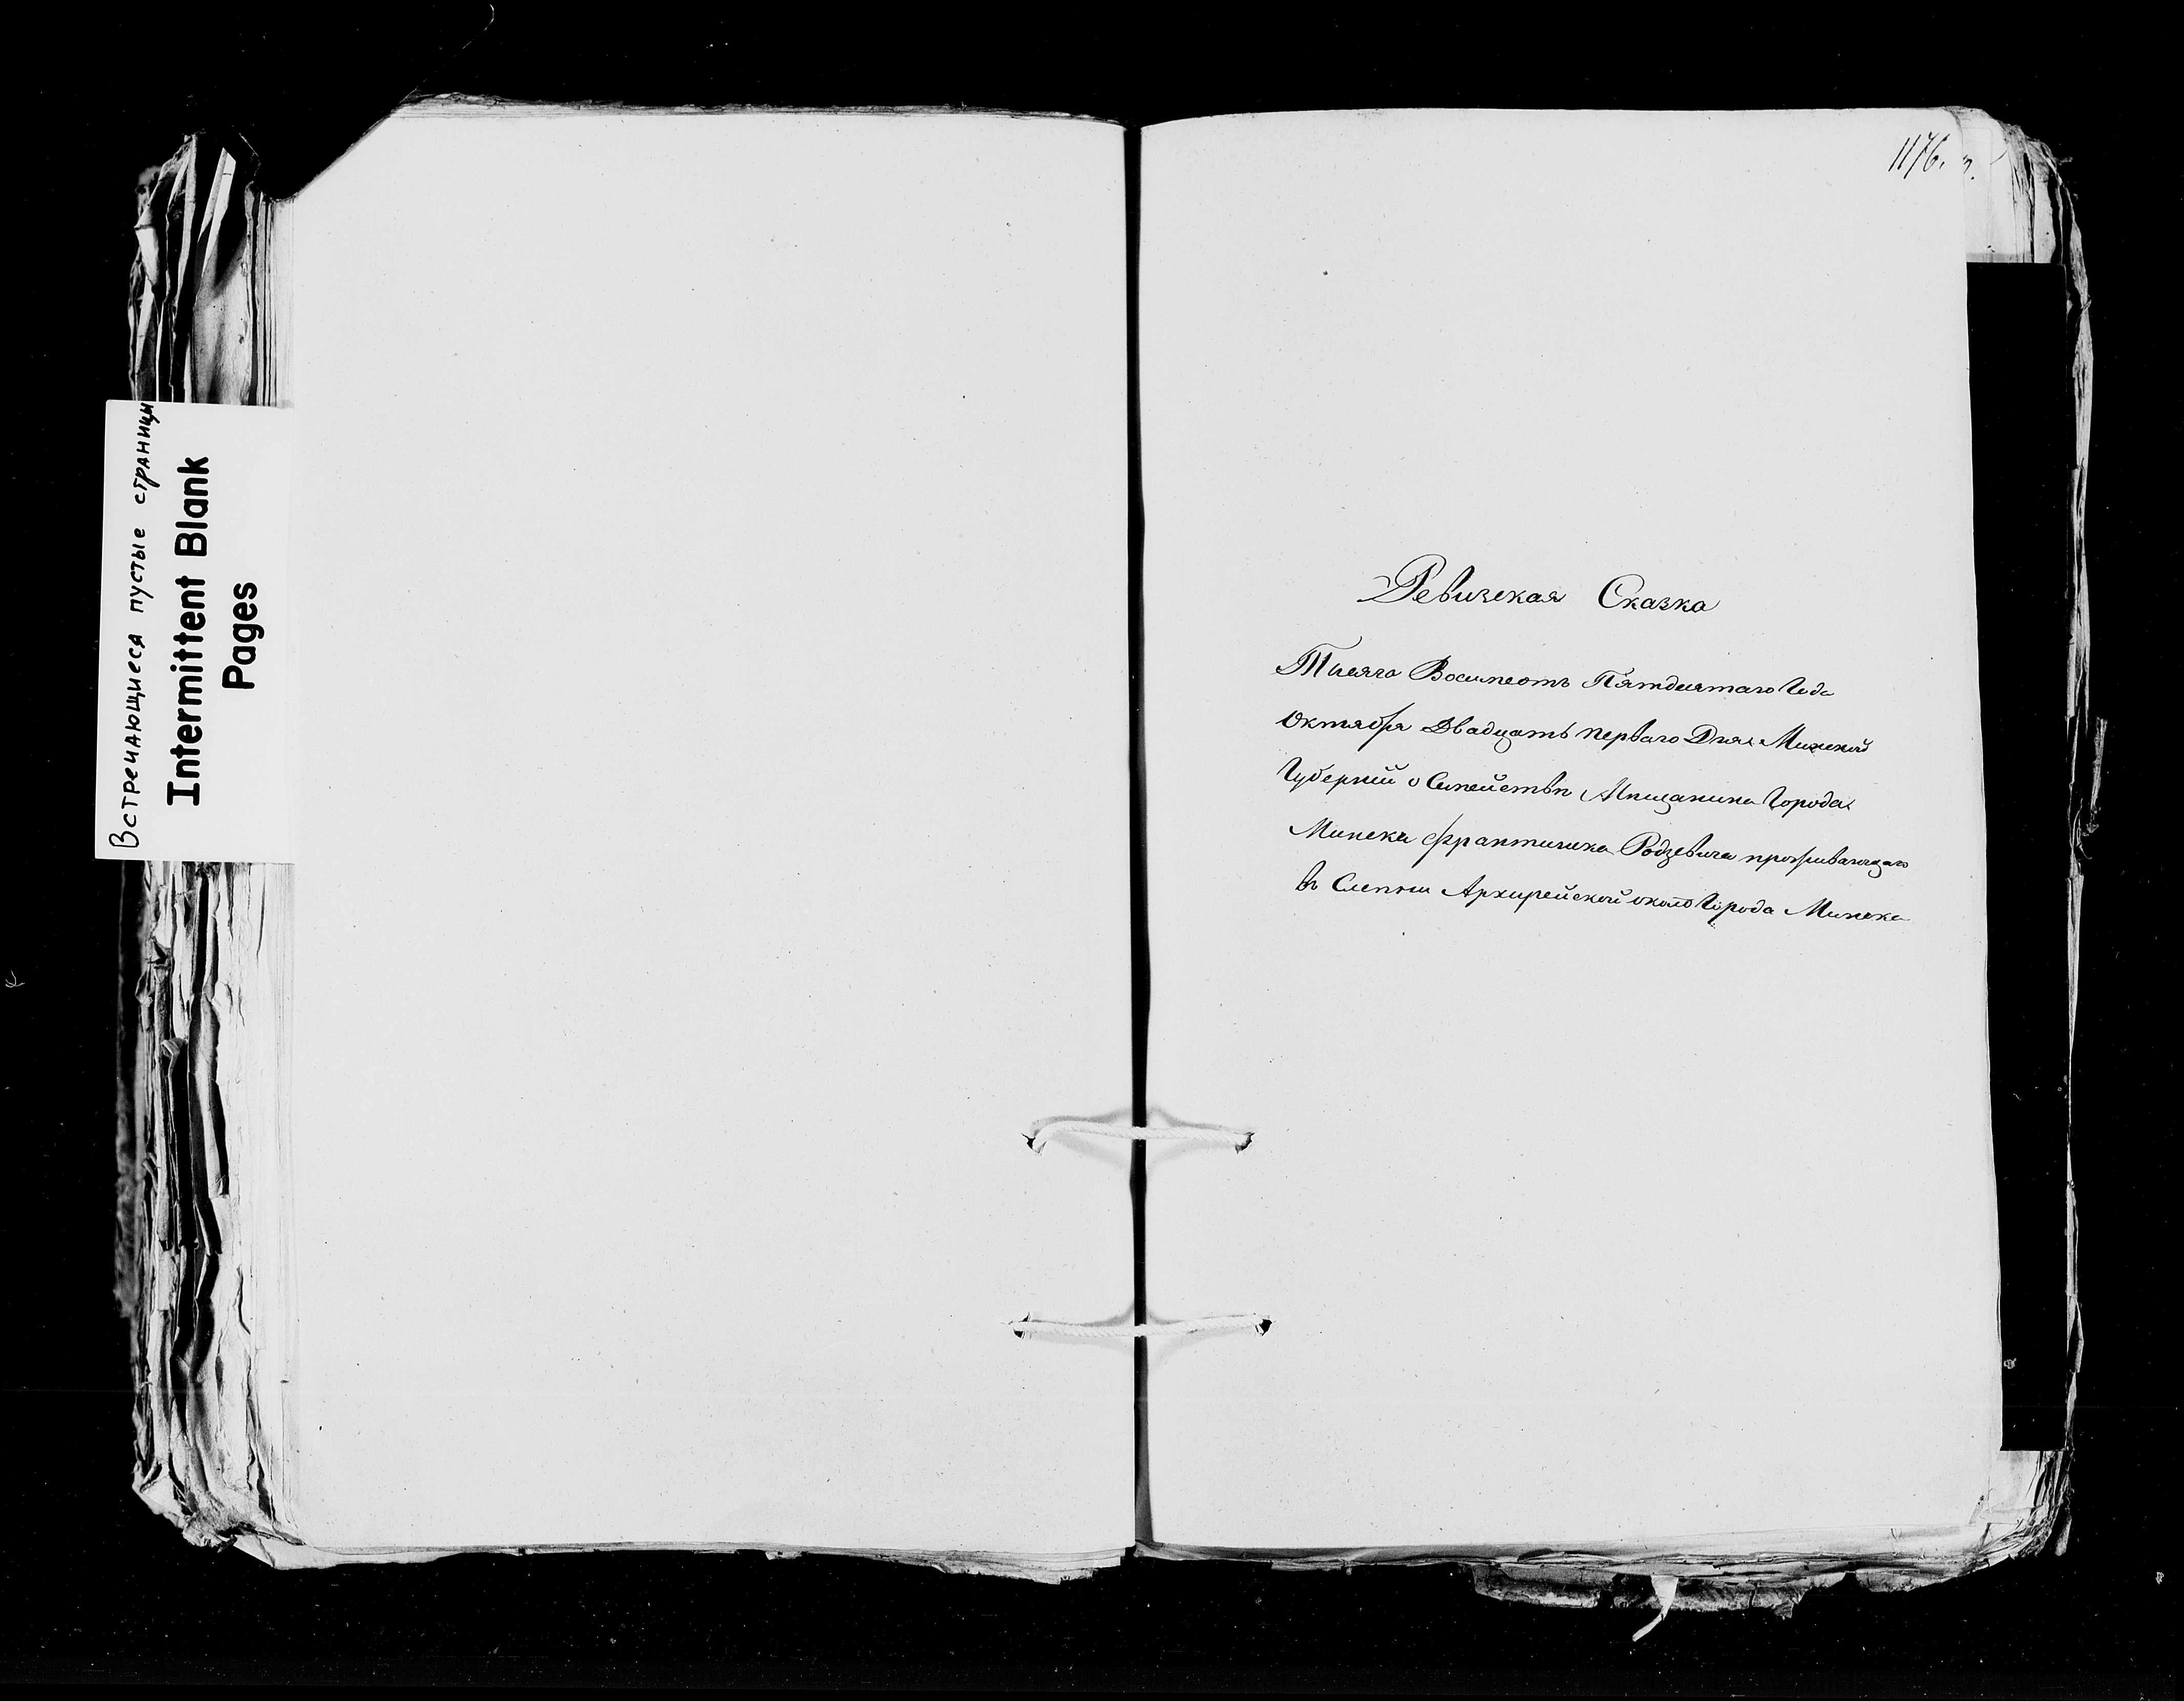 Встречающиеся пустые страницы
Intermittent Blank
Pages
1176.
Ревизская Сказка
Тысяча Восимсотъ Пятдесятаго Года
Октября Двадцать перваго Дня Минской
Губерніи о Семействѣ Мѣщанина Города
Минска Франтишка Родзевича проживающаго
въ Слепни Архирейской около Города Минска